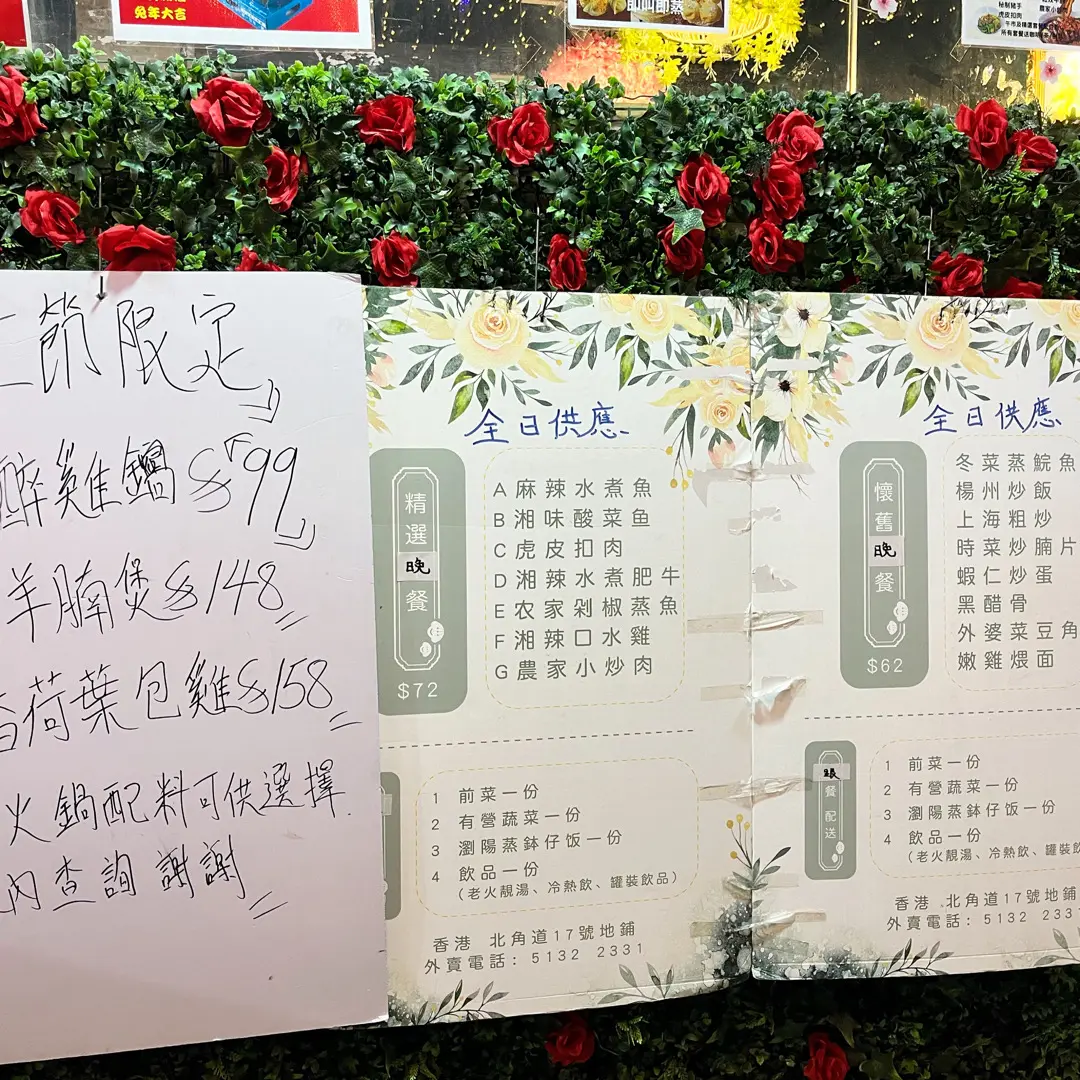 兔年大吉
即叫即蒸
秘制豬手
虎皮扣肉
節限定
醉雞鍋$99
羊腩煲$148
荷葉包雞$158
火鍋配料可供選擇
內查詢 謝謝
全日供應
精選晚餐
$72
A 麻辣水煮魚
B 湘味酸菜鱼
C 虎皮扣肉
D 湘辣水煮肥牛
E 农家剁椒蒸魚
F 湘辣口水雞
G 農家小炒肉
1 前菜一份
2 有營蔬菜一份
3 瀏陽蒸鉢仔饭一份
4 飲品一份
(老火靚湯、冷熱飲、罐裝飲品)
香港 北角道17號地鋪
外賣電話: 5132 2331
全日供應
懷舊晚餐
$62
冬菜蒸鯇魚
楊州炒飯
上海粗炒
時菜炒腩片
蝦仁炒蛋
黑醋骨
外婆菜豆角
嫩雞煨面
餐配送
1 前菜一份
2 有營蔬菜一份
3 瀏陽蒸鉢仔饭一份
4 飲品一份
(老火靚湯、冷熱飲、罐裝飲
香港 北角道17號地鋪
外賣電話: 5132 233